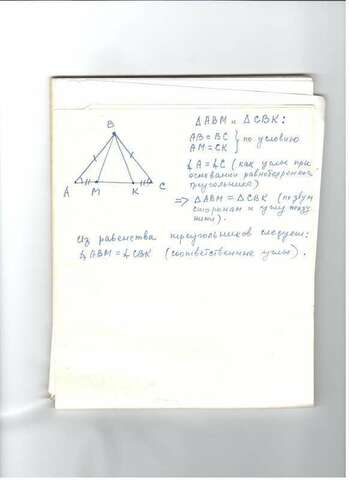 B
A M K C
△ABM и △CBK:
AB = BC } по условию
AM = CK
∠A = ∠C (как углы при
основании равнобедренного
треугольника)
=> △ABM = △CBK (по двум
сторонам и углу между
ними).
Из равенства треугольников следует:
∠ABM = ∠CBK (соответственные углы).